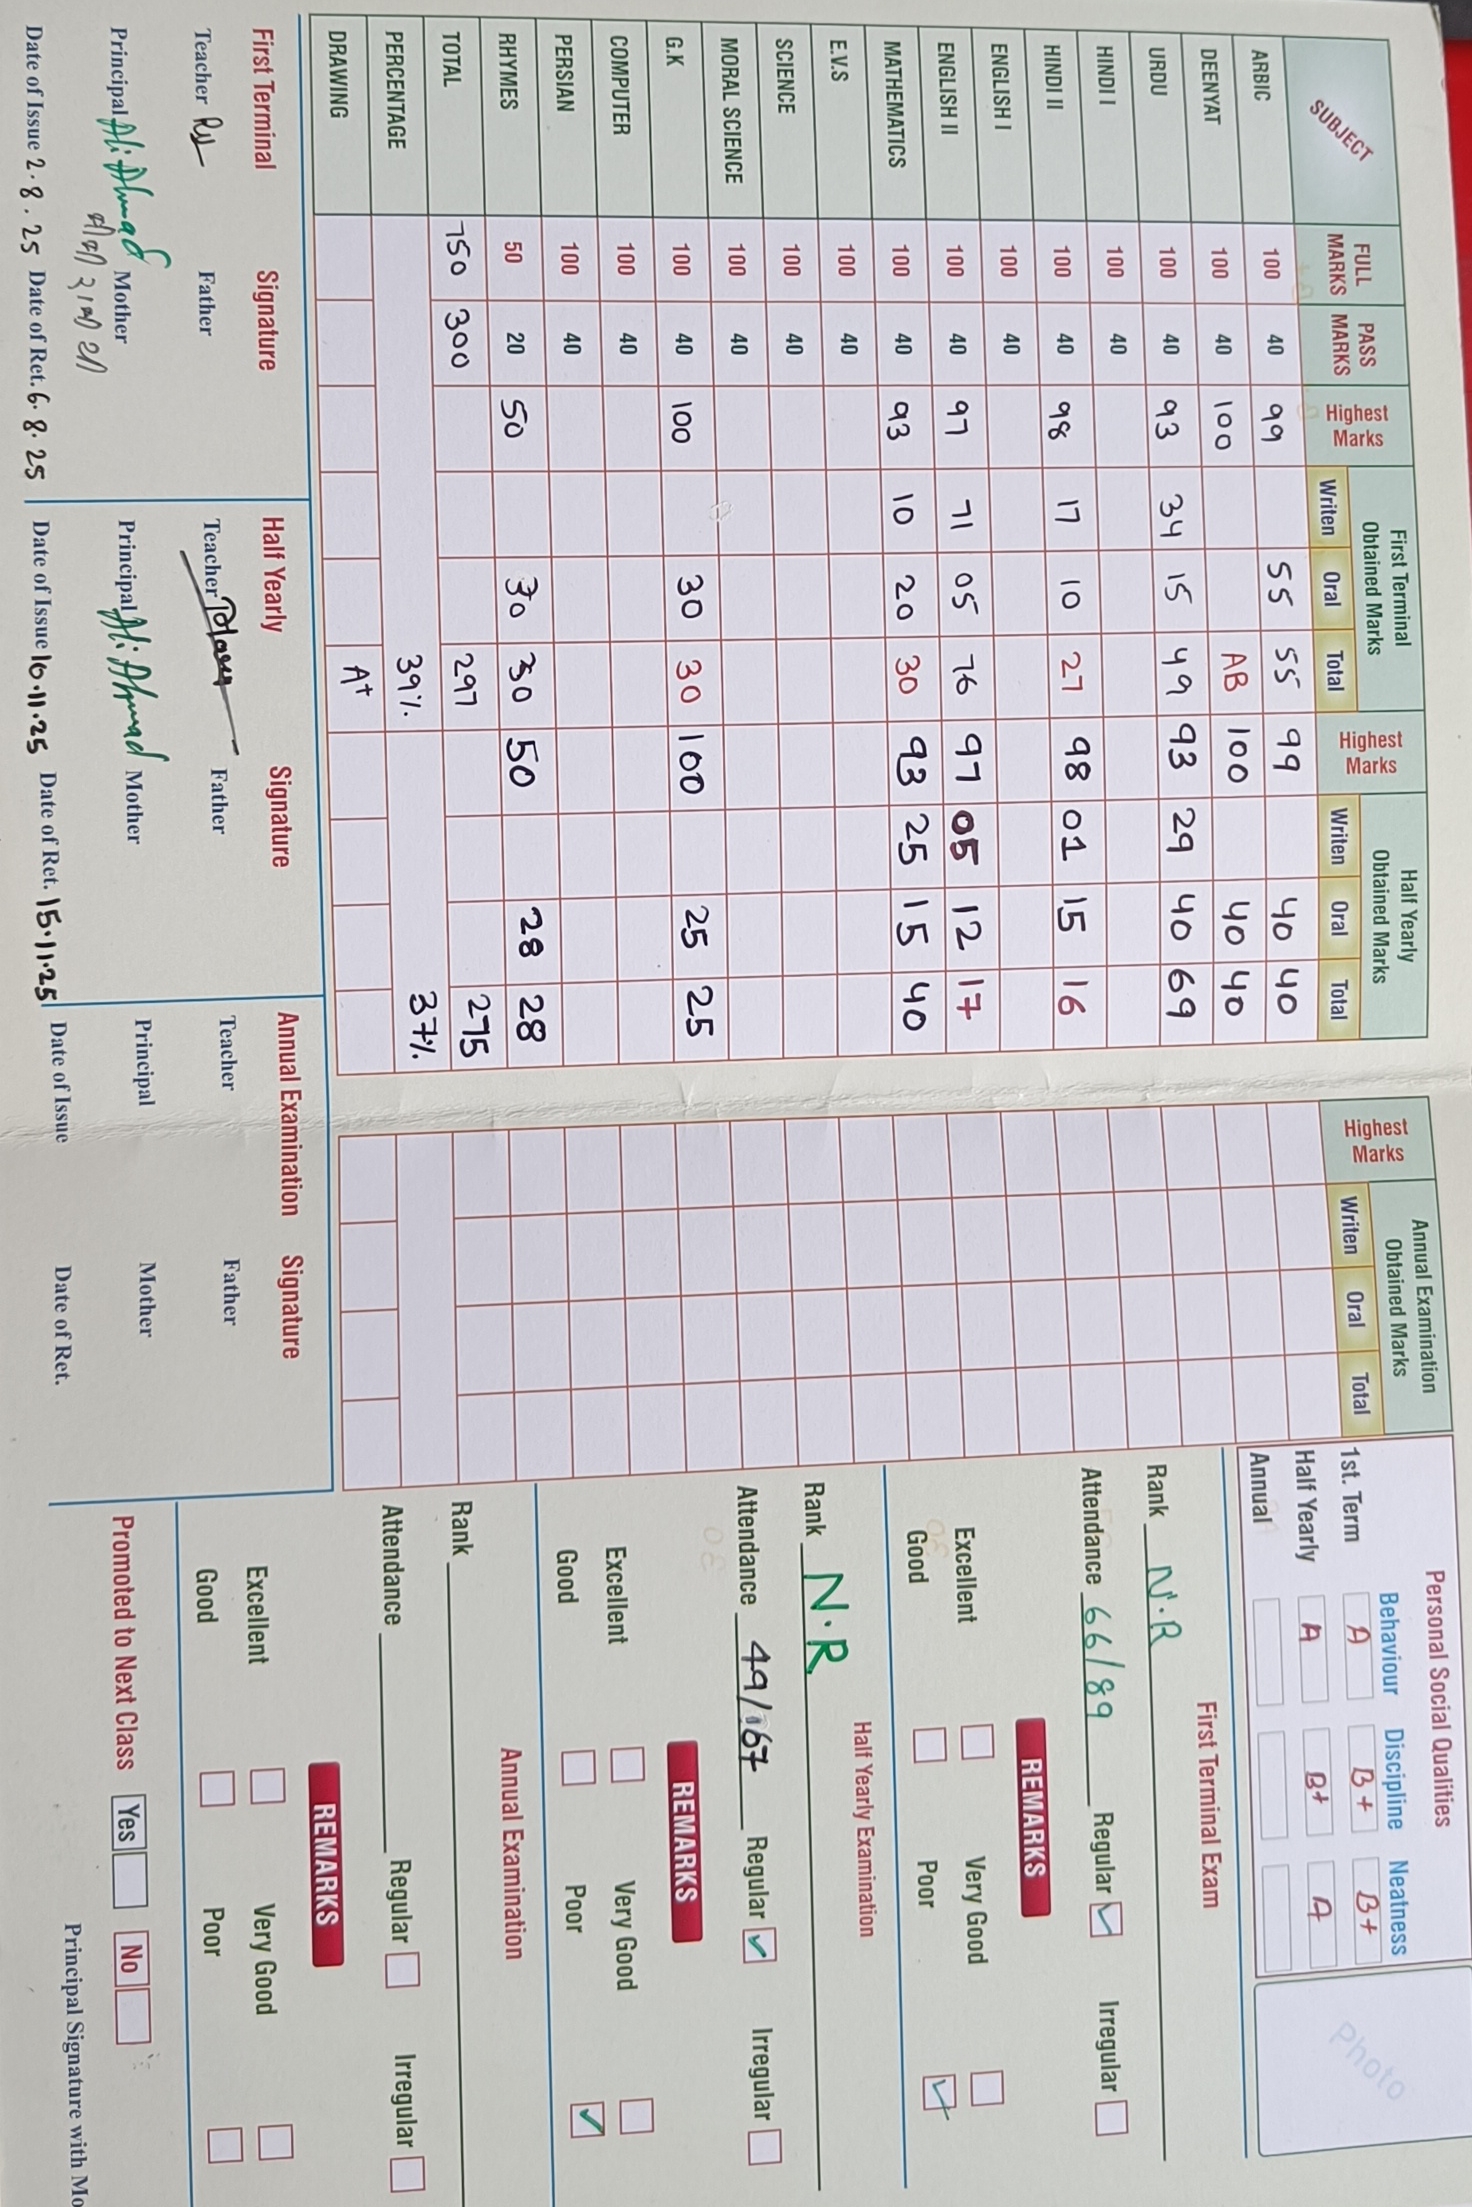 SUBJECT FULL MARKS PASS MARKS Highest Marks First Terminal Obtained Marks Writen Oral Total Highest Marks Half Yearly Obtained Marks Writen Oral Total Highest Marks Annual Examination Obtained Marks Writen Oral Total
ARBIC 100 40 99 55 55 99 40 40
DEENYAT 100 40 100 AB 100 40 40
URDU 100 40 93 34 15 49 93 29 40 69
HINDI I 100 40
HINDI II 100 40 98 17 10 27 98 01 15 16
ENGLISH I 100 40
ENGLISH II 100 40 97 71 05 76 97 05 12 17
MATHEMATICS 100 40 93 10 20 30 93 25 15 40
E.V.S 100 40
SCIENCE 100 40
MORAL SCIENCE 100 40
G.K 100 40 100 30 30 100 25 25
COMPUTER 100 40
PERSIAN 100 40
RHYMES 50 20 50 30 30 50 28 28
TOTAL 750 300 297 275
PERCENTAGE 39% 37%
DRAWING A+
First Terminal Signature Half Yearly Signature Annual Examination Signature
Teacher Father Teacher Father Teacher Father
Principal Ali Ahmad Mother Principal Ali Ahmad Mother Principal Mother
Date of Issue 2.8.25 Date of Ret. 6.8.25 Date of Issue 10.11.25 Date of Ret. 15.11.25 Date of Issue Date of Ret.
Personal Social Qualities
Behaviour Discipline Neatness
1st. Term A B+ B+
Half Yearly A B+ A
Annual
Photo
First Terminal Exam
Rank N.R
Attendance 66/89 Regular Irregular
REMARKS
Excellent Very Good
Good Poor
Half Yearly Examination
Rank N.R
Attendance 49/167 Regular Irregular
REMARKS
Excellent Very Good
Good Poor
Annual Examination
Rank
Attendance Regular Irregular
REMARKS
Excellent Very Good
Good Poor
Promoted to Next Class Yes No
Principal Signature with